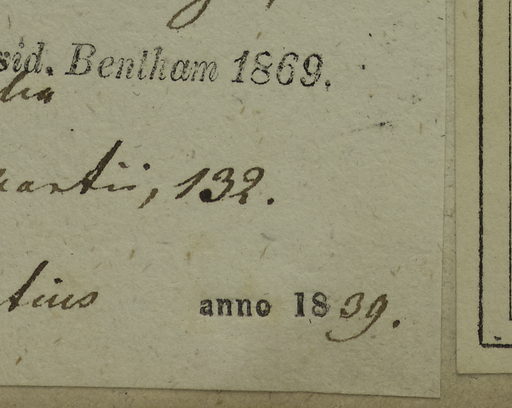 sid. Bentham 1869.
martii, 132.
tius anno 1839.